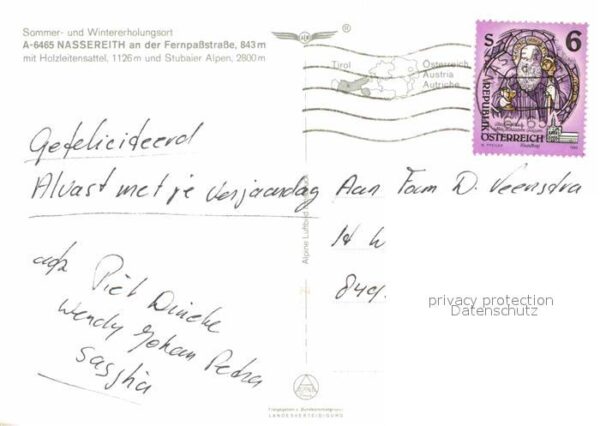 Sommer- und Wintererholungsort
A-6465 NASSEREITH an der Fernpaßstraße, 843 m
mit Holzleitensattel, 1126 m und Stubaier Alpen, 2800 m
Tirol
Österreich
Austria
Autriche
S 6
REPUBLIK
ÖSTERREICH
6465
Gefeliciteerd
Alvast met je verjaardag
Piet Dineke
Wendy Johan Petra
Sasshia
Aan Fam D. Veenstra
849.
Alpine Luftbild
privacy protection
Datenschutz
LANDESVERTEIDIGUNG